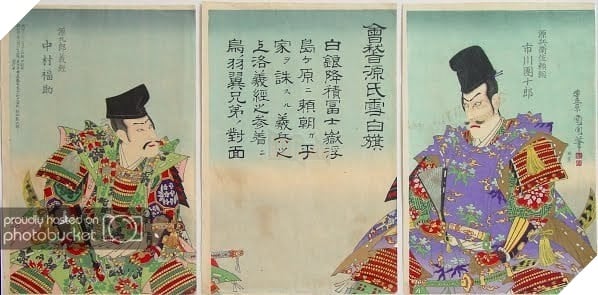 源兵衛佐頼朝
市川團十郎
豊原國周筆
會稽源氏雪白旗
白降積富士嶽浮
島ケ原ニ頼朝カ平
家ヲ誅スル義兵之
上洛義經之参着ニ
鳥羽翼兄弟ノ對面
源九郎義経
中村福助
proudly hosted on
photobucket